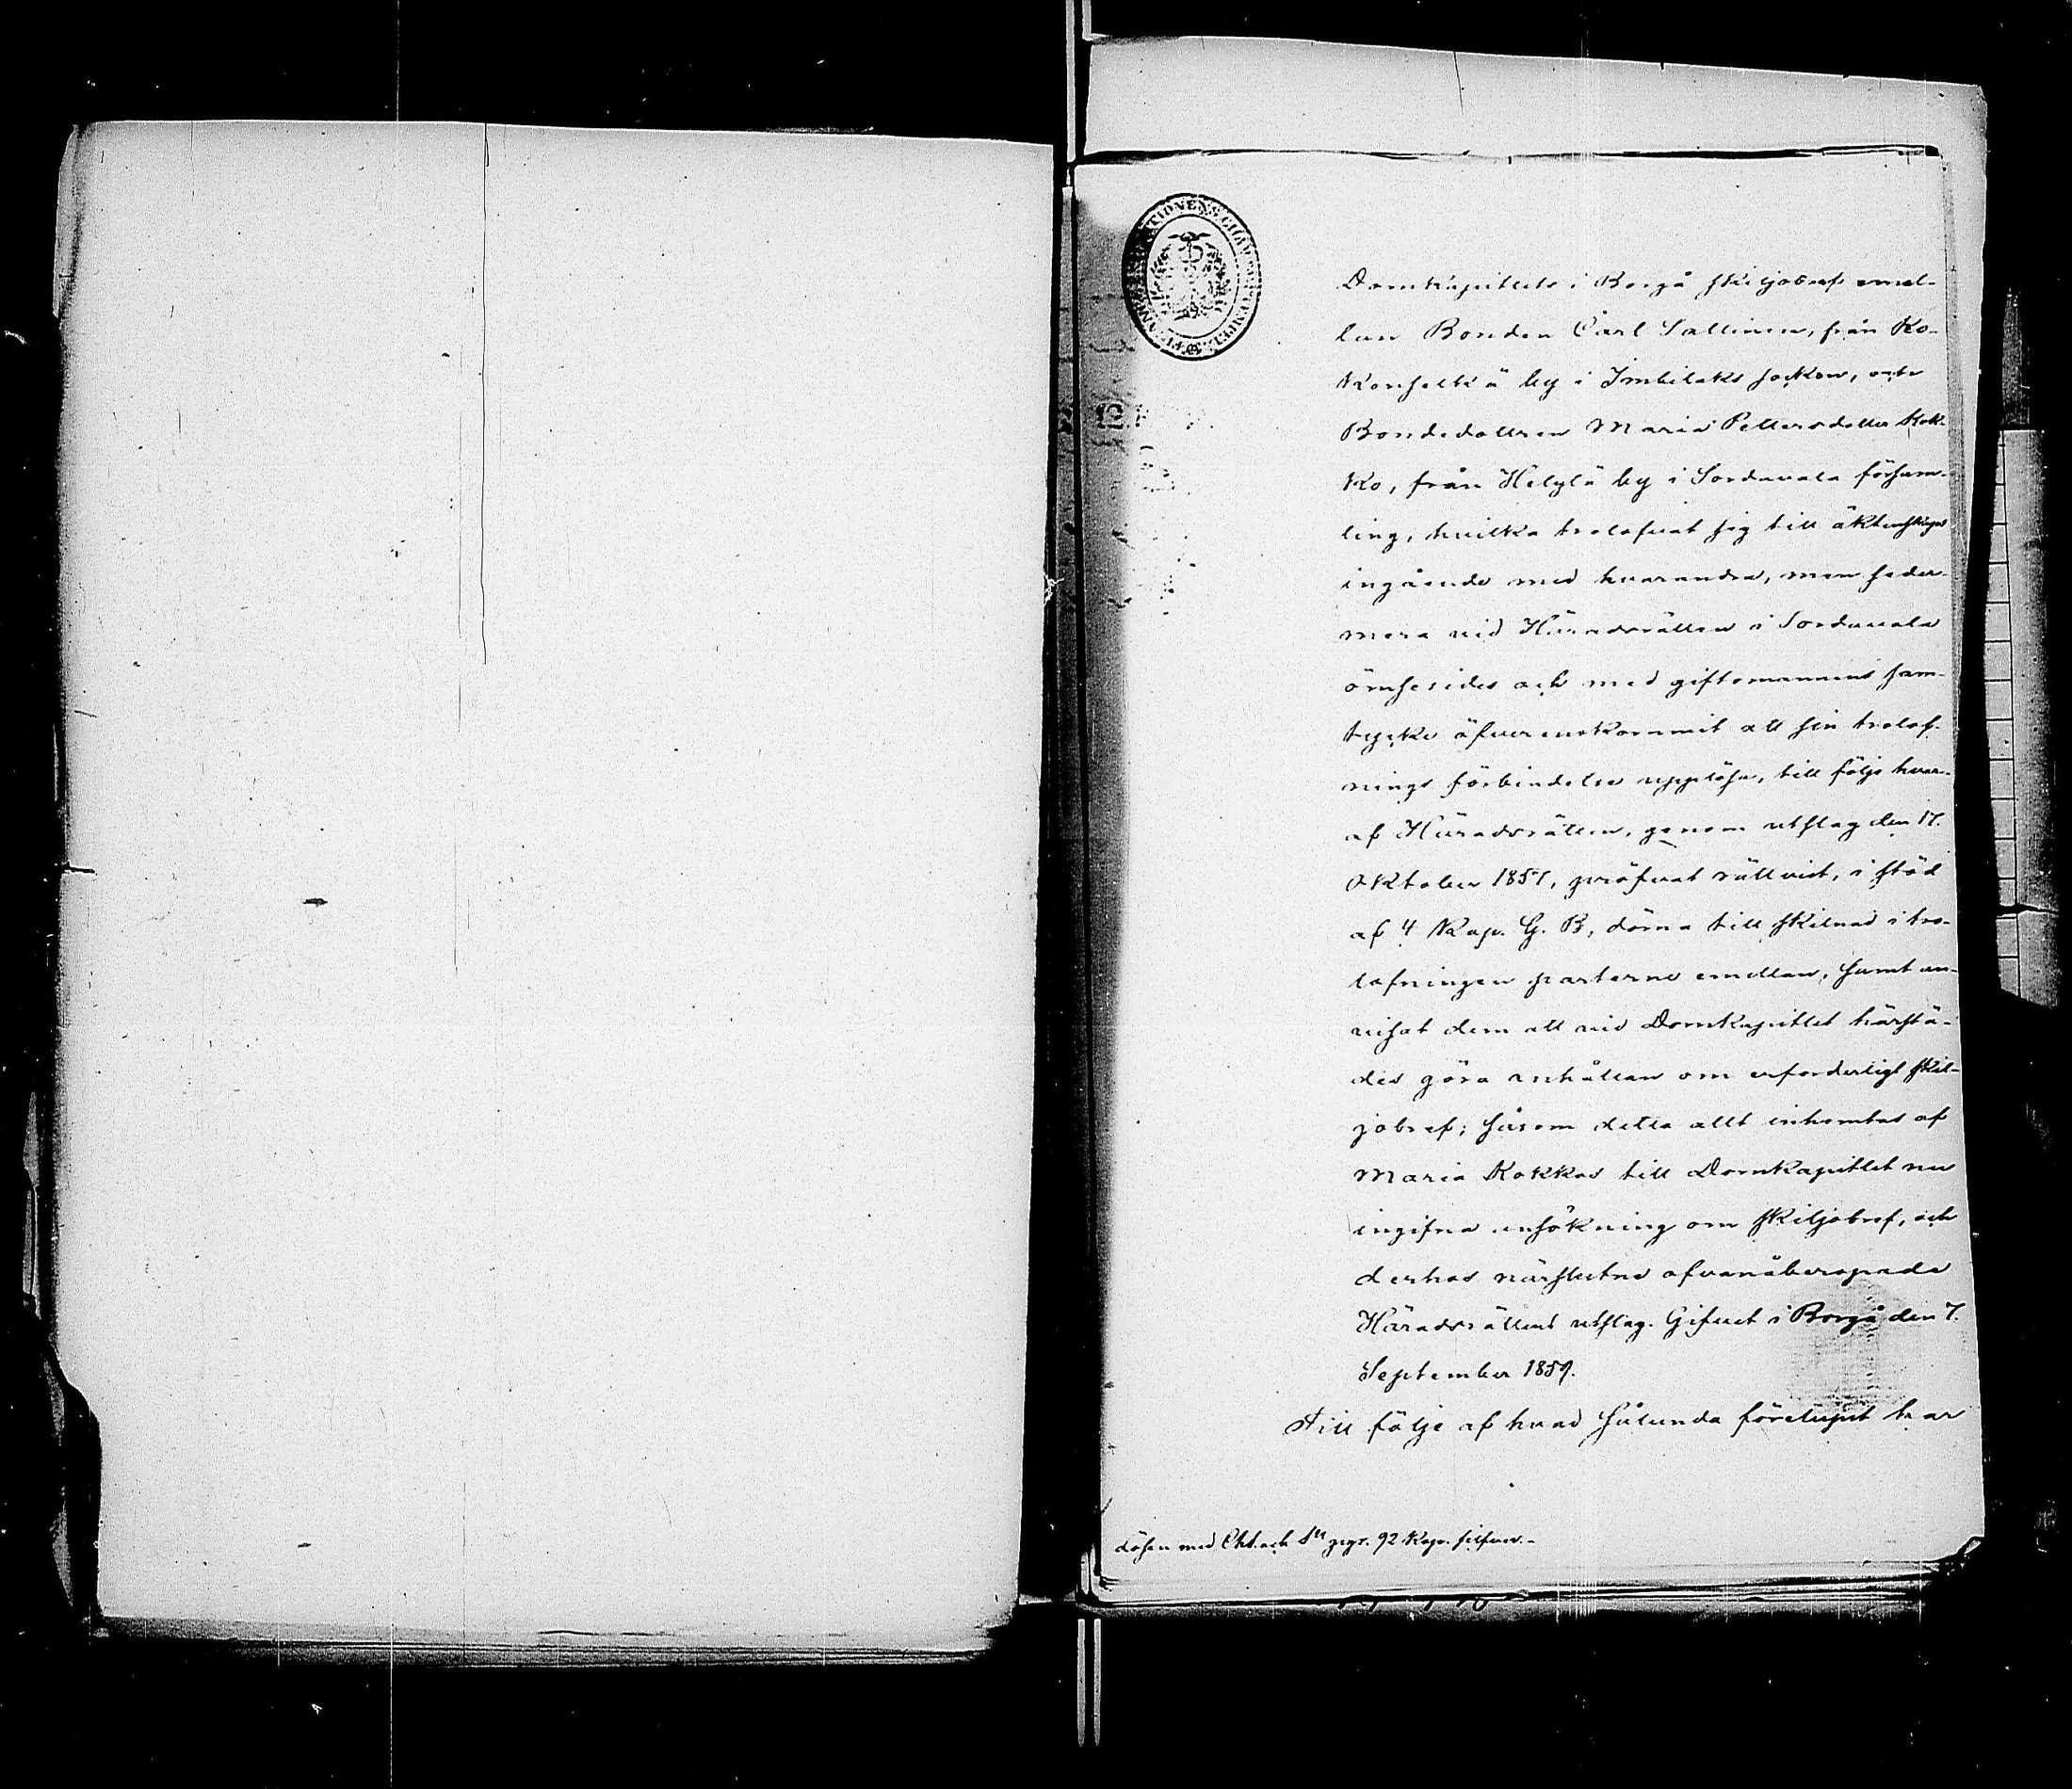 Domkapitlets i Borgå skiljobref emel-
lan Bonden Carl Sallinen, från Ko-
konselkä by i Imbilaks socken, och
Bondedottren Maria Pettersdotter Kok-
ko, från Helylä by i Sordavala försam-
ling, hvilka trolofvat sig till äktenskaps
ingående med hvarandra, men seder-
mera vid Häradsrätten i Sordavala
ömsesides och med giftomannens sam-
tycke öfverenskommit att sin trolof-
nings förbindelse upplösa, till följe hvar-
af Häradsrätten, genom utslag den 17.
Oktober 1857, pröfvat rättvist, i stöd
af 4 Kap. G. B, döma till skilnad i tro-
lofningen parterne emellan, samt an-
visat dem att vid Domkapitlet härstä-
des göra anhållan om erforderligt skil-
jobref; såsom detta allt inhemtas af
Maria Kokkos till Domkapitlet nu
ingifna ansökning om skiljobref, och
derhos närslutne ofvanåberopade
Häradsrättens utslag. Gifvet i Borgå den 7.
September 1859.
Till följe af hvad sålunda förelupit har
Lösen med Cht. och Stt ppr. 92 Kop. silfver.-